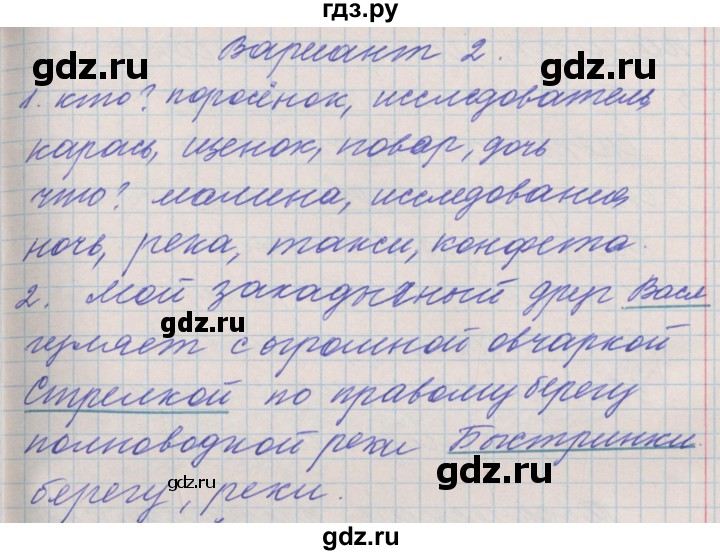 гдз.ру
Вариант 2.
1. кто? поросёнок, исследователь,
карась, щенок, повар, дочь
что? малина, исследования,
ночь, река, такси, конфета.
2. Мой закадычный друг Вася
гуляет с огромной овчаркой
Стрелкой по правому берегу
полноводной реки Быстринки.
берегу, реки.
gdz.ru
gdz.ru
gdz.ru
gdz.ru
gdz.ru
gdz.ru
gdz.ru